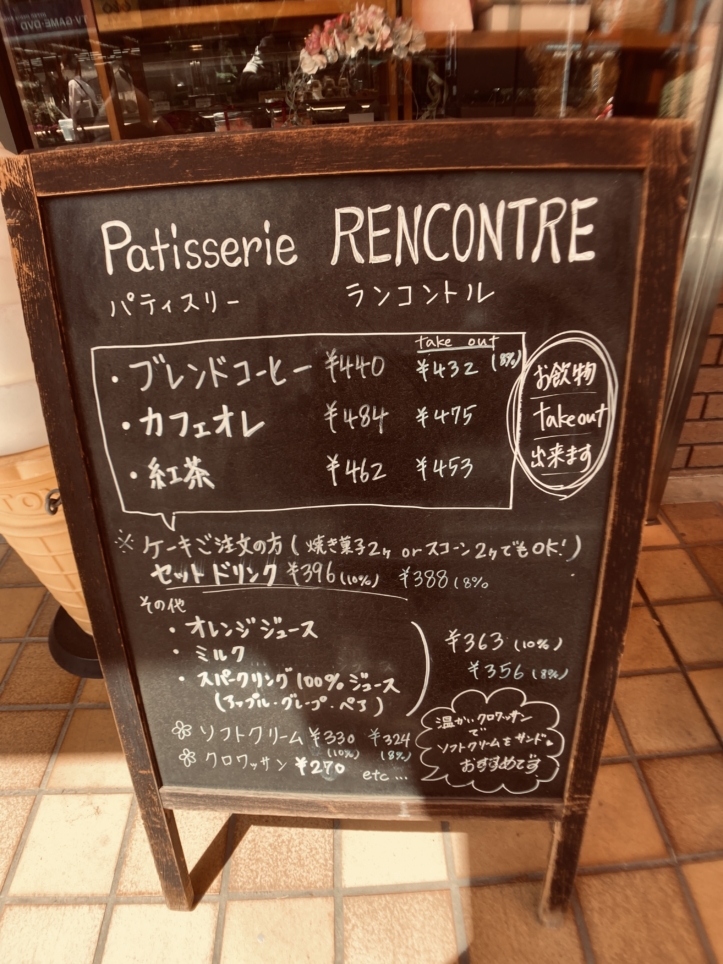 TV GAME・DVD
Patisserie RENCONTRE
パティスリー ランコントル
take out
・ブレンドコーヒー ¥440 ¥432 (8%)
・カフェオレ ¥484 ¥475
・紅茶 ¥462 ¥453
お飲物
takeout
出来ます
※ ケーキご注文の方 (焼き菓子2ヶ orスコーン2ヶでもOK!)
セットドリンク ¥396 (10%) ¥388 (8%
その他
・オレンジジュース
・ミルク
・スパークリング100%ジュース
(アップル・グレープ・ペア)
¥363 (10%)
¥356 (8%)
ソフトクリーム ¥330 (10%) ¥324 (8%)
クロワッサン ¥270 etc...
温かいクロワッサン
で
ソフトクリームをサンド。
おすすめです